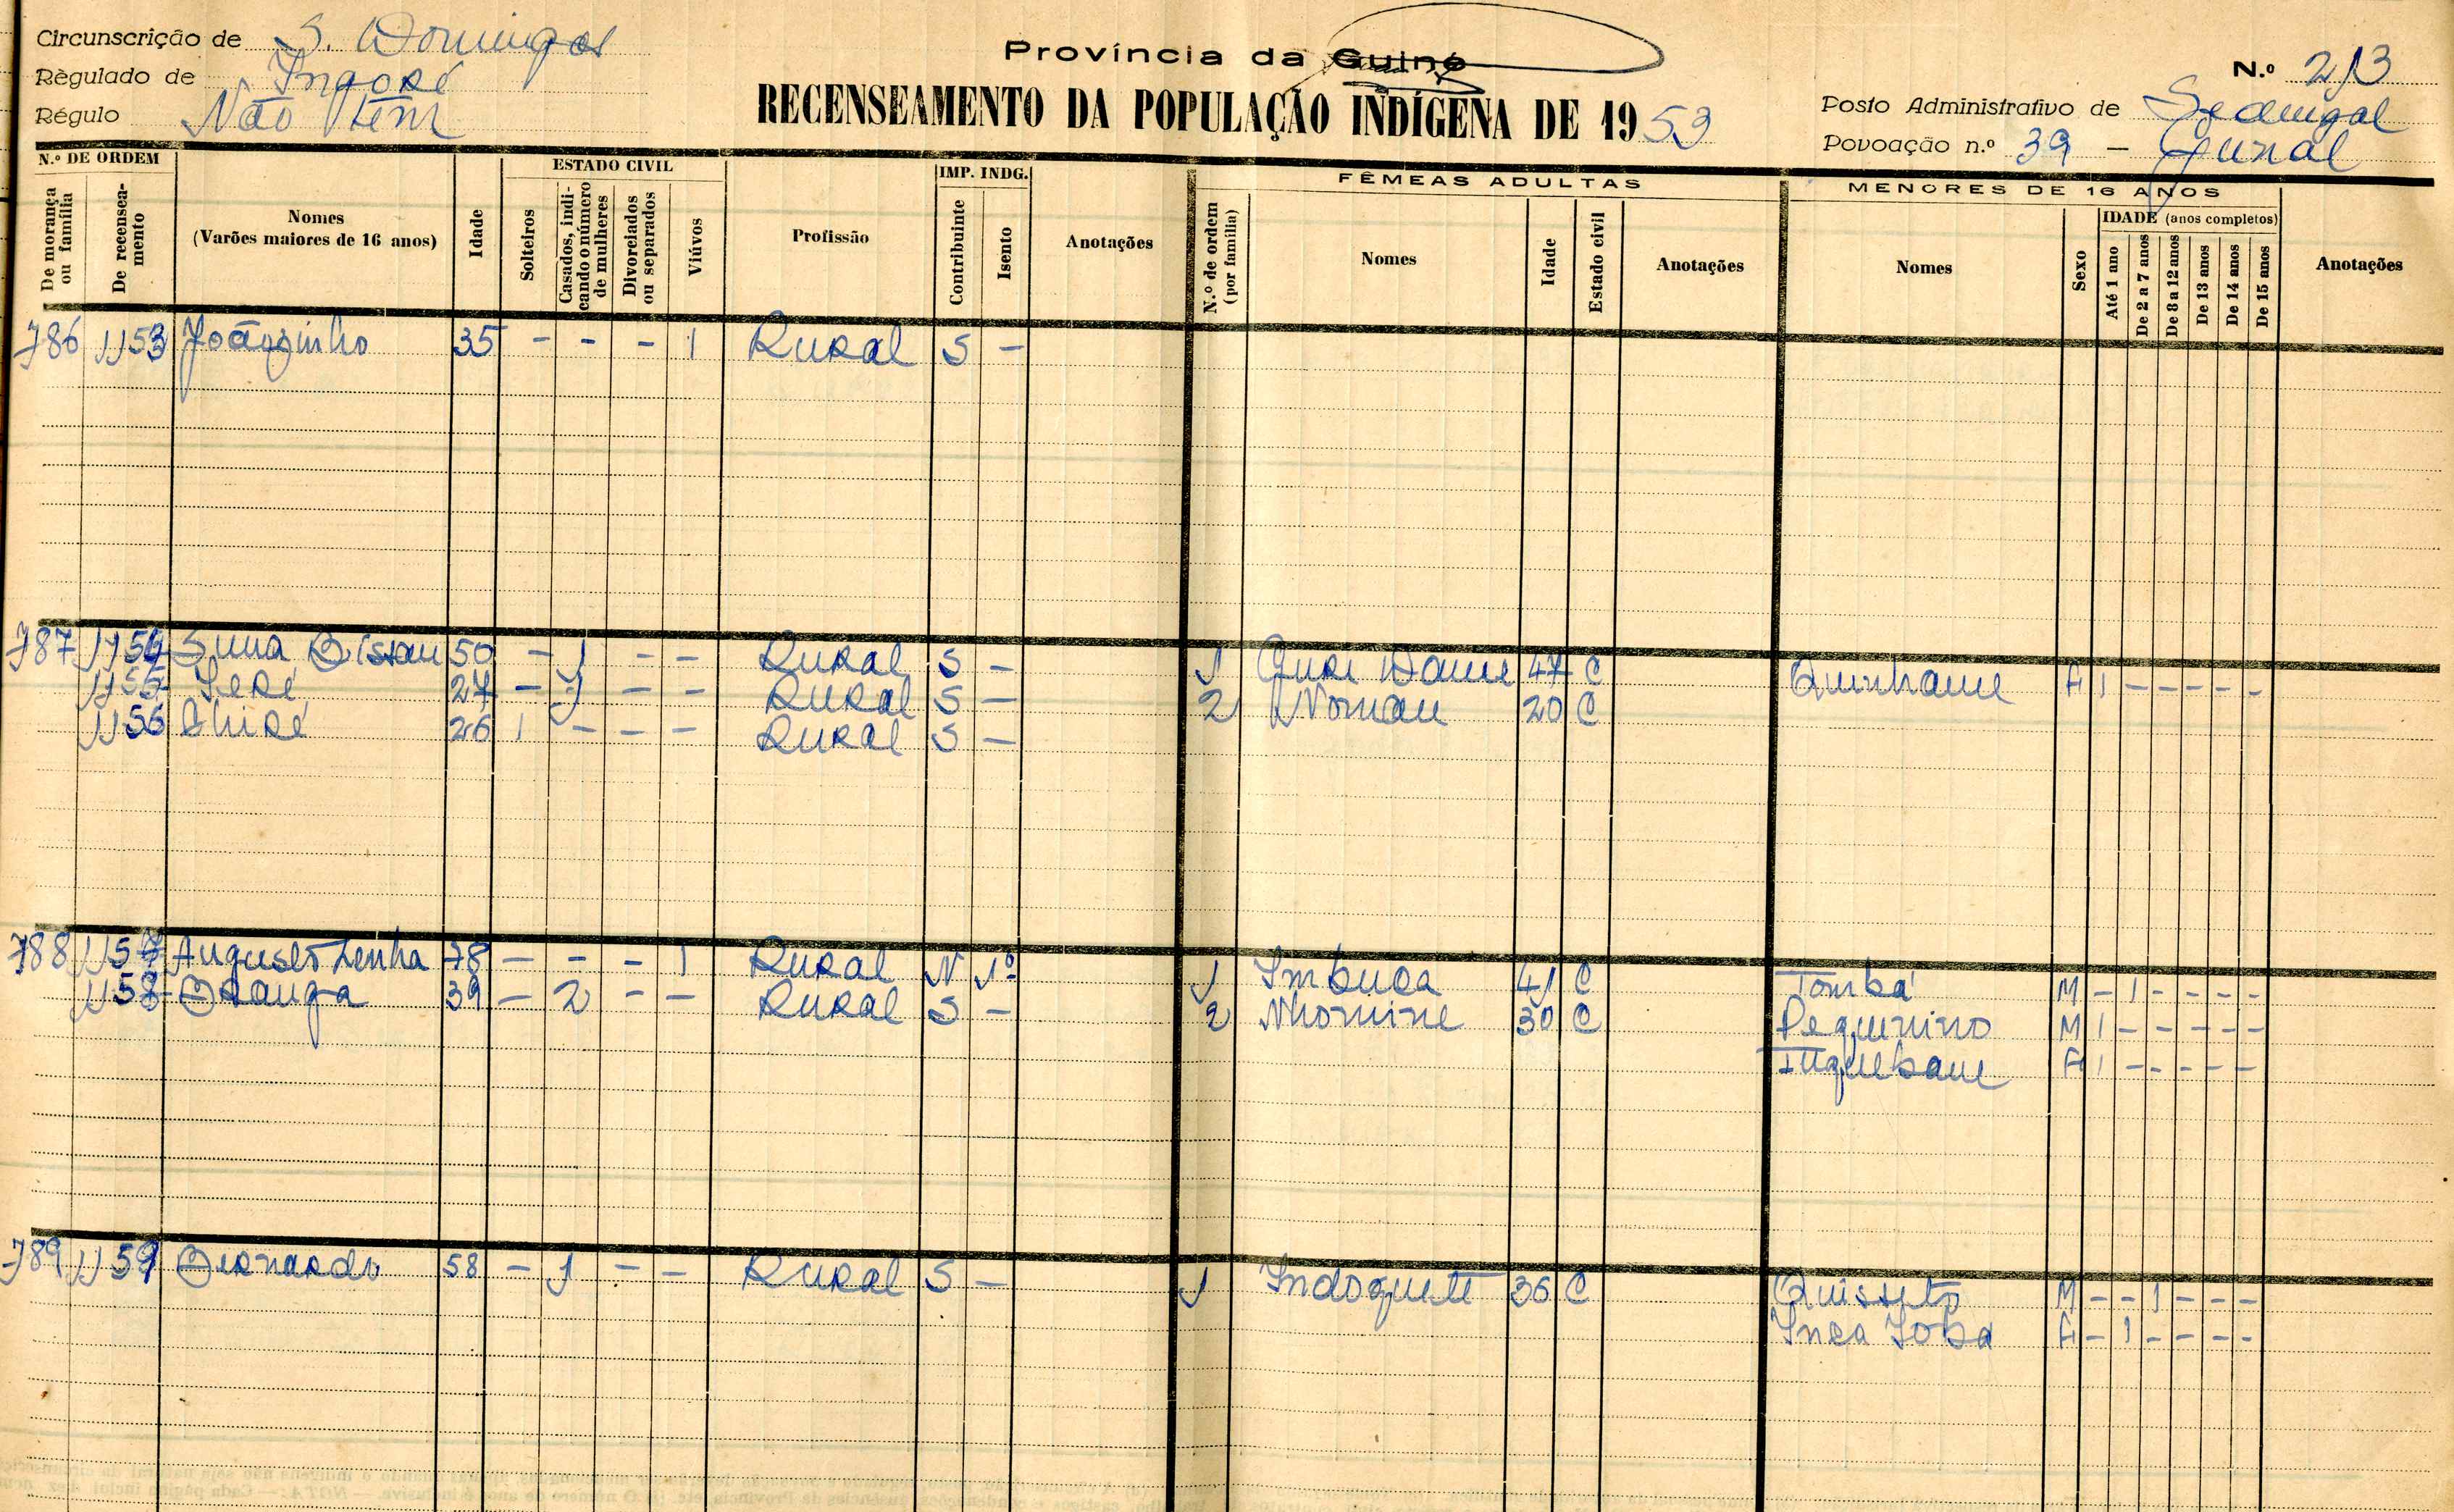 Circunscrição de S. Domingos
Règulado de Ingoré
Régulo Não tem
Província da Guiné
RECENSEAMENTO DA POPULAÇÃO INDÍGENA DE 1953
N.º 213
Posto Administrativo de Sedengal
Povoação n.º 39 -
N.º DE ORDEM
De morança ou família
De recensea-mento
Nomes
(Varões maiores de 16 anos)
Idade
ESTADO CIVIL
Solteiros
Casados, indi-cando o número de mulheres
Divorciados ou separados
Viúvos
Profissão
IMP. INDG.
Contribuinte
Isento
Anotações
FÊMEAS ADULTAS
N.º de ordem (por família)
Nomes
Idade
Estado civil
Anotações
MENORES DE 16 ANOS
Nomes
Sexo
IDADE (anos completos)
Até 1 ano
De 2 a 7 anos
De 8 a 12 anos
De 13 anos
De 14 anos
De 15 anos
Anotações
786 1153 Joãozinho 35 - - - 1 Rural S -
787 1154 Bissau 50 - 1 - - Rural S - 1 47 C Quinhame F 1 - - - - -
1155 27 - 1 - - Rural S - 2 20 C
1156 26 1 - - - Rural S -
788 1157 Augusto Lenha 78 - - - 1 Rural N 1º 1 Imbuca 41 C Tombá M - 1 - - - -
1158 Branga 39 - 2 - - Rural S - 2 Nhomine 30 C Pequenino M 1 - - - - -
F 1 - - - - -
789 1159 Bernardo 58 - 1 - - Rural S - 1 Indoquete 36 C Quisseto M - - 1 - - -
F - 1 - - - -